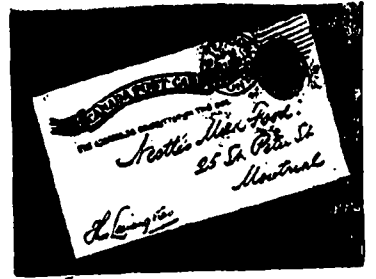 CANADA POST CARD
THE ADDRESS TO BE WRITTEN ON THIS SIDE
Milk Food
25 St. Peter St
Montreal